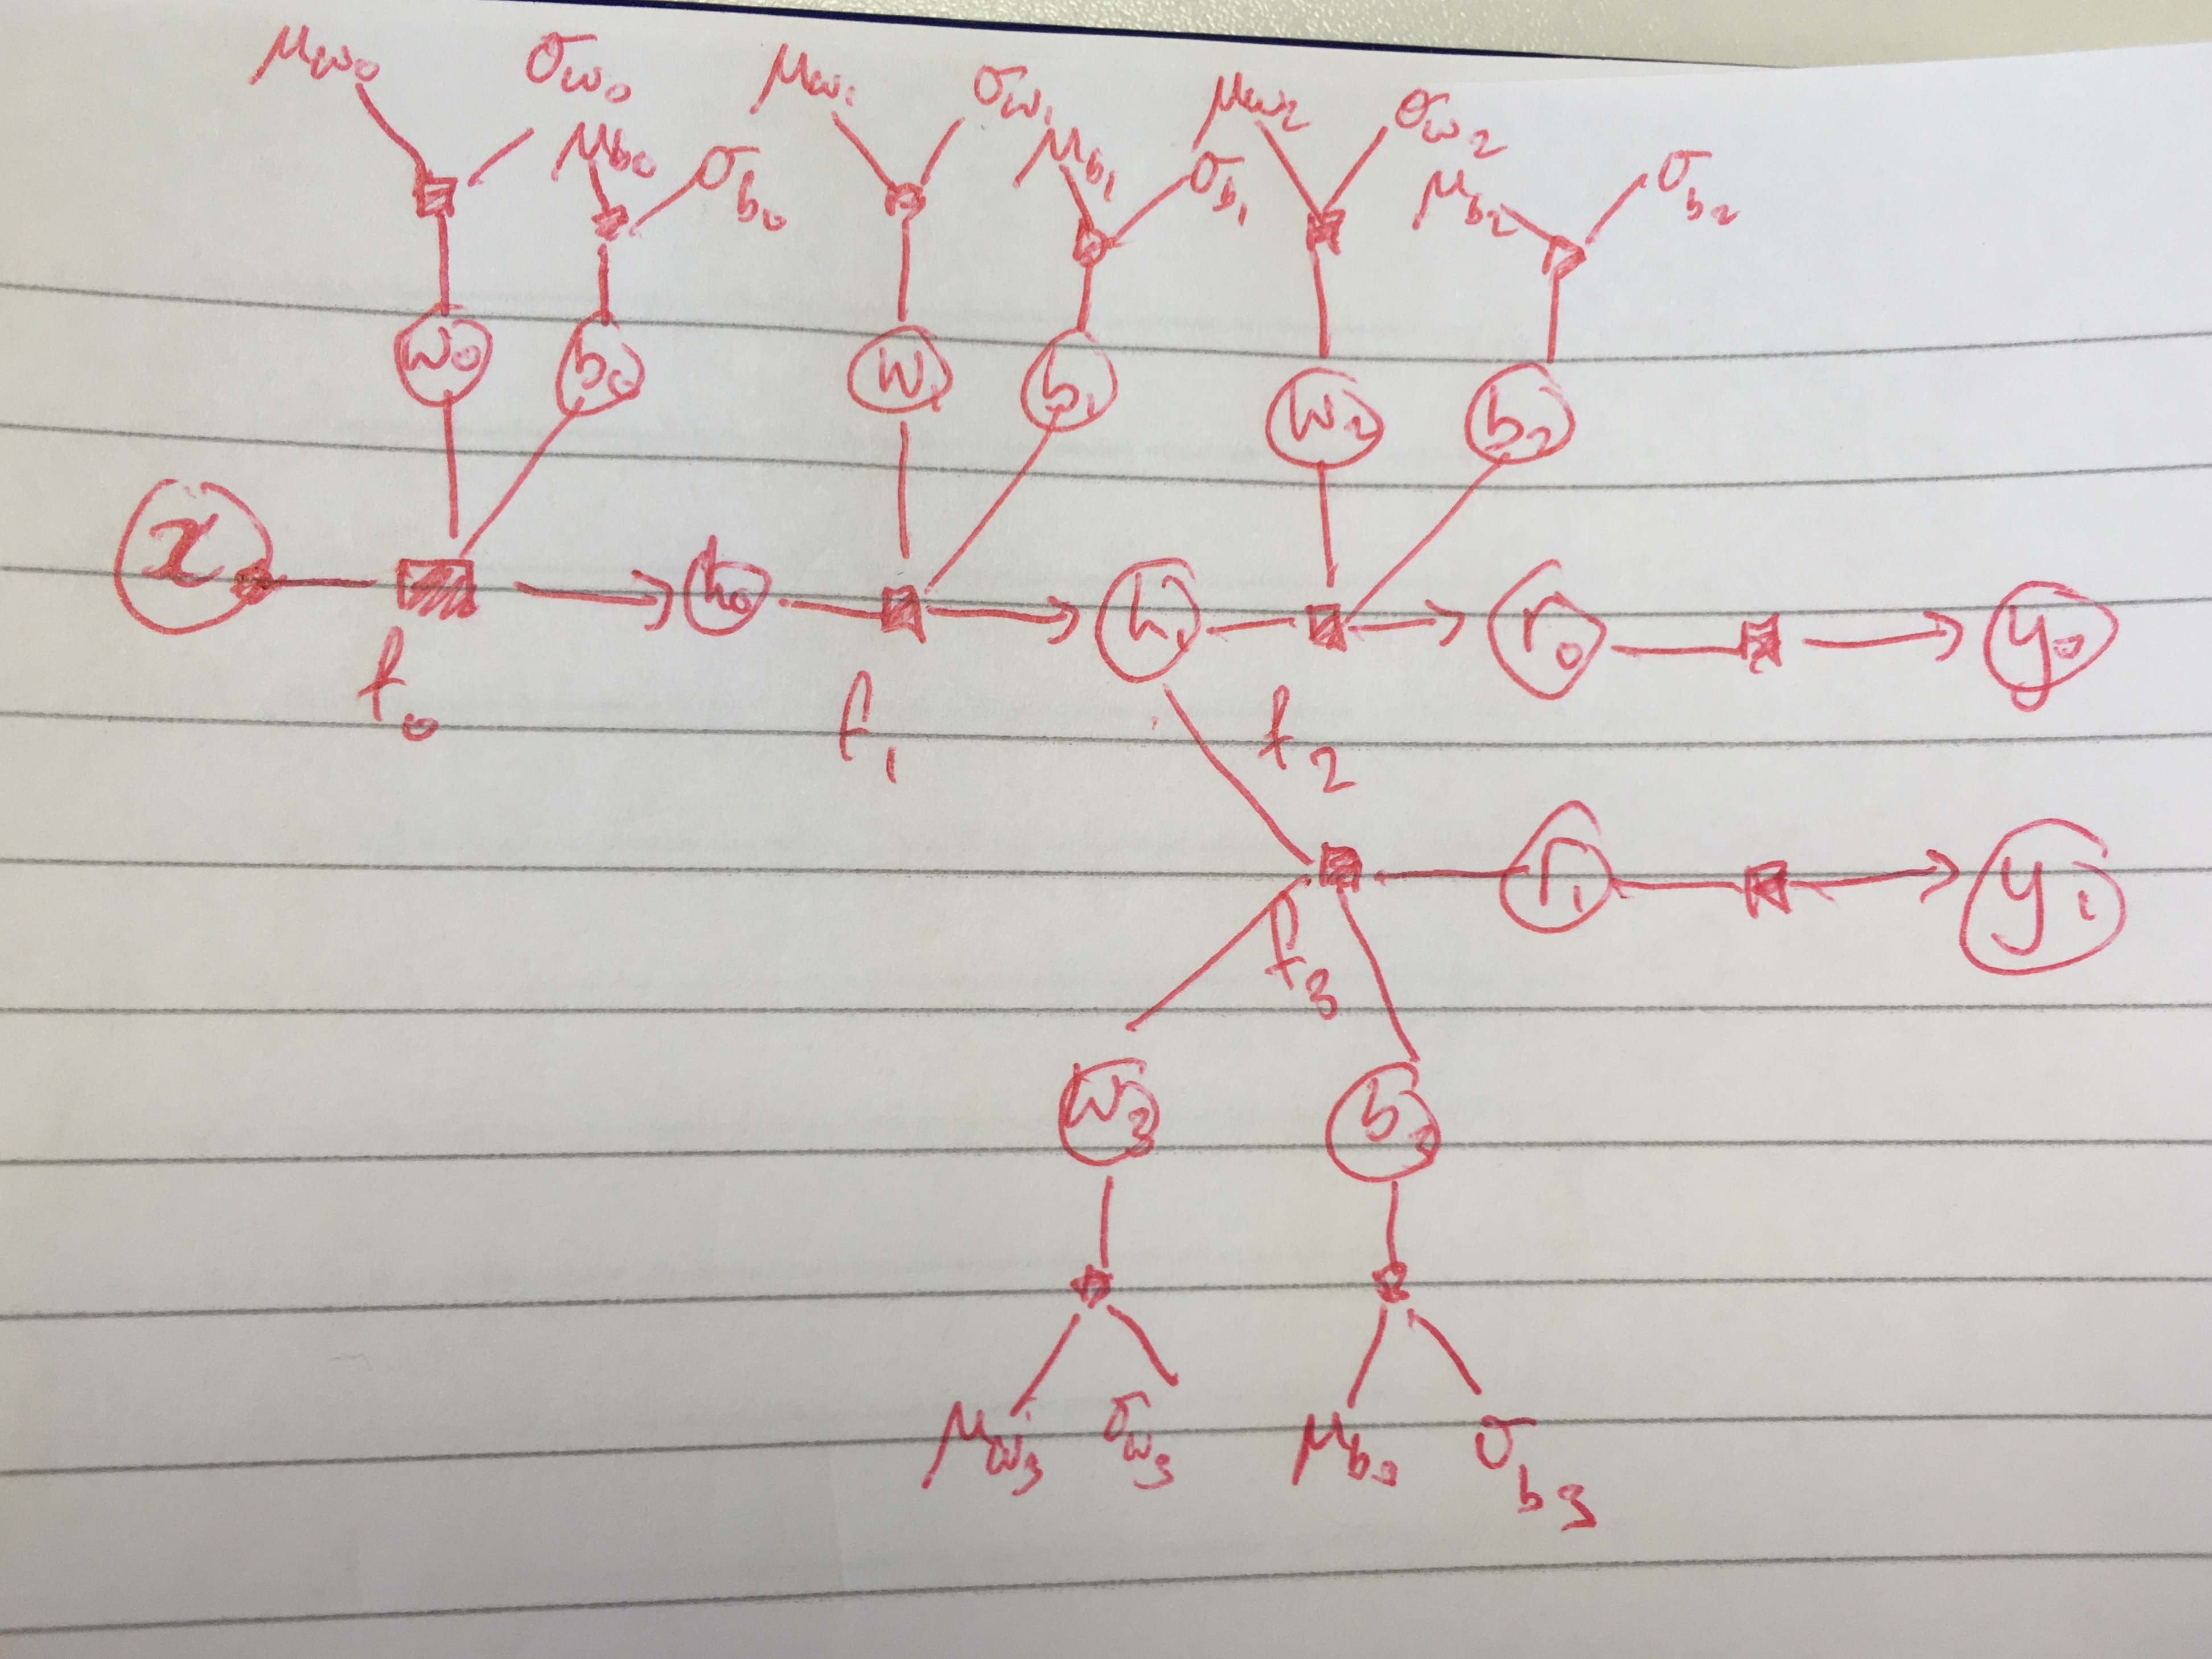 μw₀ σw₀ μw₁ σw₁ μw₂ σw₂
μb₀ σb₀ μb₁ σb₁ μb₂ σb₂
w₀ b₀ w₁ b₁ w₂ b₂
x h₀ h₁ r₀ y₀
f₀ f₁ f₂
r₁ y₁
f₃
w₃ b₃
μw₃ σw₃ μb₃ σb₃